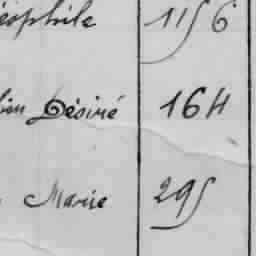 éophile 1156
lien Désiré 164
Marie 295